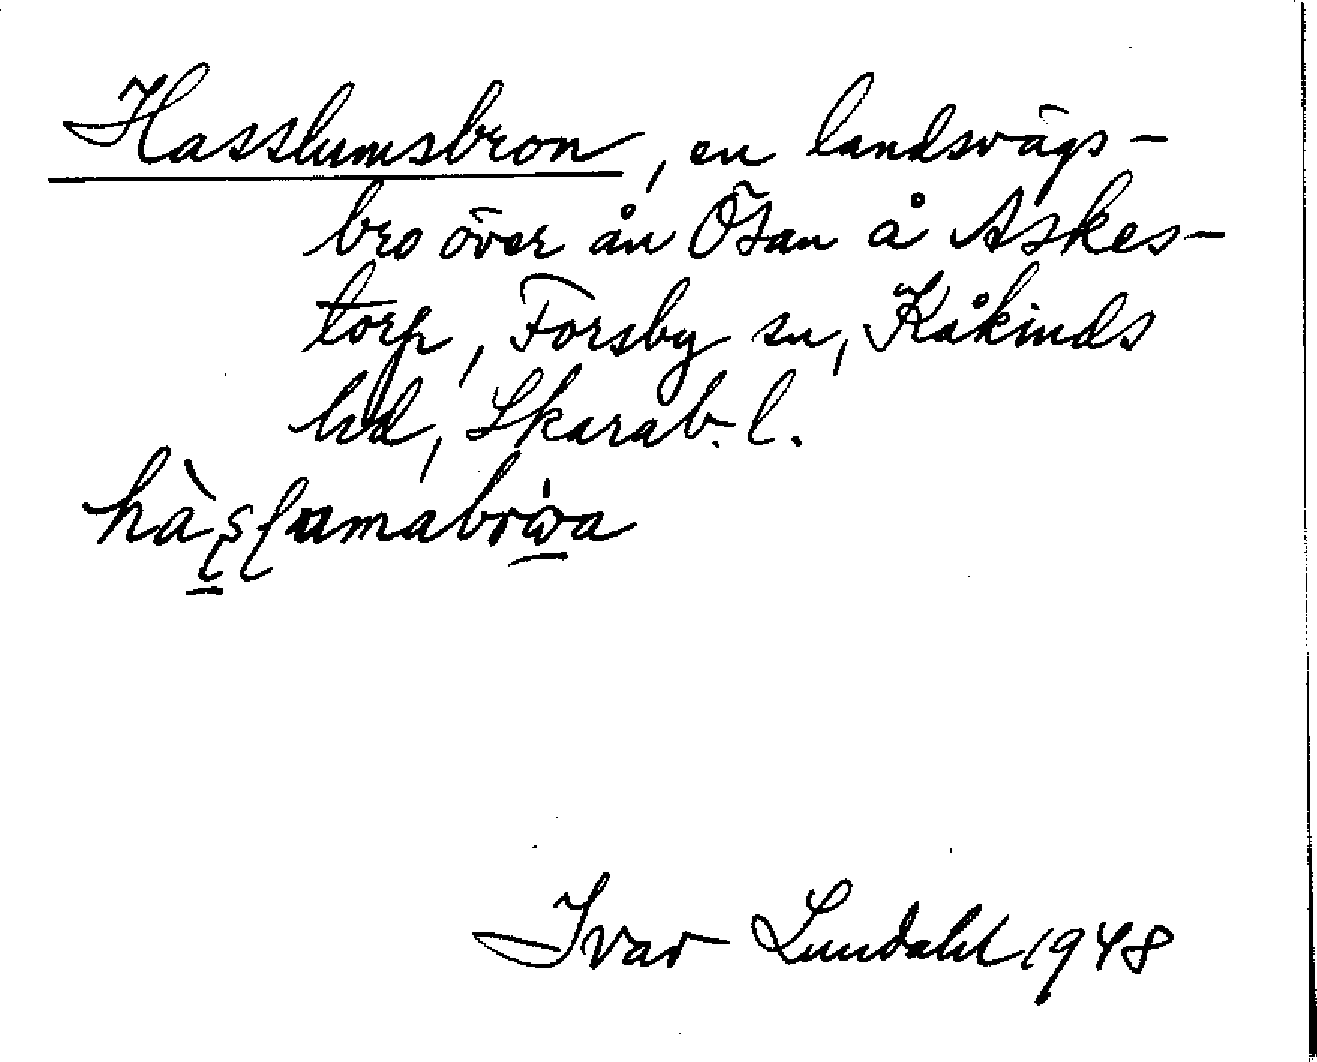 Hasslumsbron, en landsvägs-
bro över ån Ösan å Askes-
torp, Forsby sn, Kåkinds
hd, Skarab. l.
Ivar Lundahl 1948